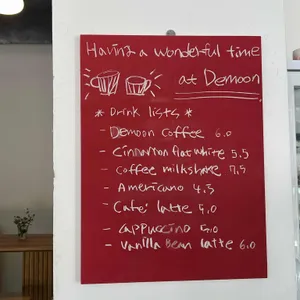 Having a wonderful time
at Demoon
* Drink lists *
- Demoon coffee 6.0
- Cinnamon flat white 5.5
- coffee milkshake 7.5
- Americano 4.5
- Cafe' latte 5.0
- cappuccino 5.0
- vanilla bean latte 6.0